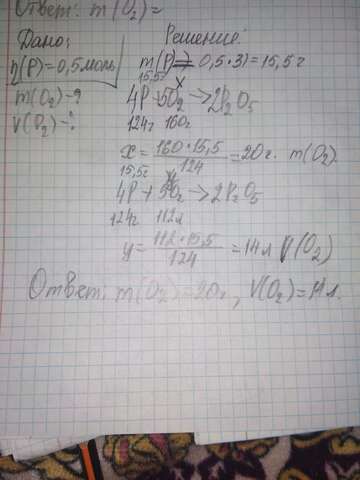 Ответ: m(O₂)=
Дано: Решение:
η(P)=0,5моль m(P)= 0,5·31=15,5г
m(O₂)-? 15,5г x
V(O₂)-? 4P+5O₂→2P₂O₅
124г 160г
x=160·15,5/124=20г. m(O₂).
15,5г y
4P+5O₂→2P₂O₅
124г 112л
y=112·15,5/124=14л V(O₂)
Ответ: m(O₂)=20г, V(O₂)=14л.